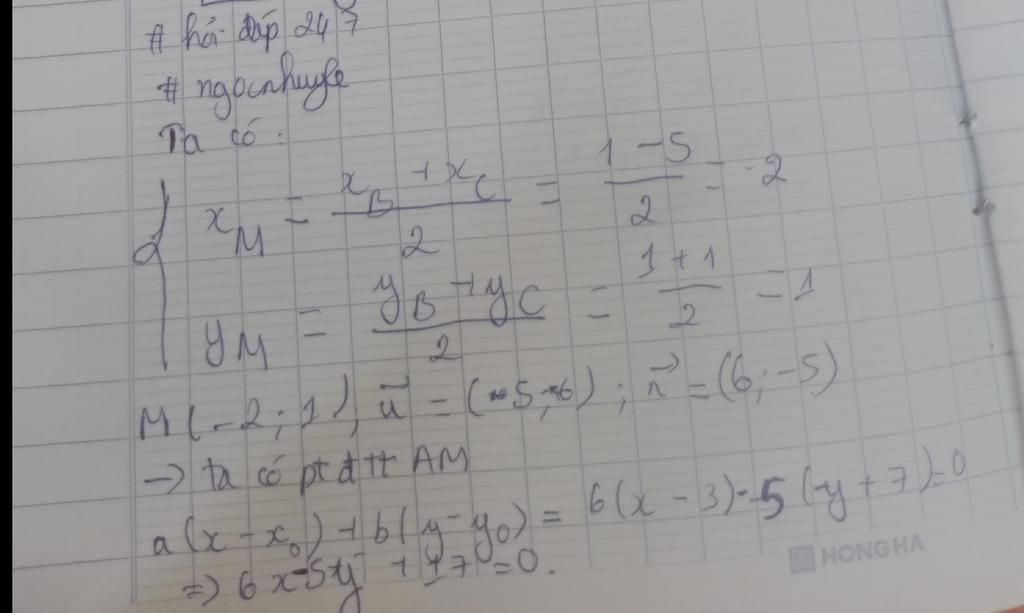 # hỏi đáp 247
# ngocnhuye
Ta có:
x_M = (x_B + x_C)/2 = (1 - 5)/2 = -2
y_M = (y_B + y_C)/2 = (1 + 1)/2 = 1
M(-2; 1), u⃗ = (-5; -6); n⃗ = (6; -5)
→ ta có pt đtt AM
a(x - x₀) + b(y - y₀) = 6(x - 3) - 5(-y + 7) = 0
=> 6x - 5y + 17 = 0.
HONG HA